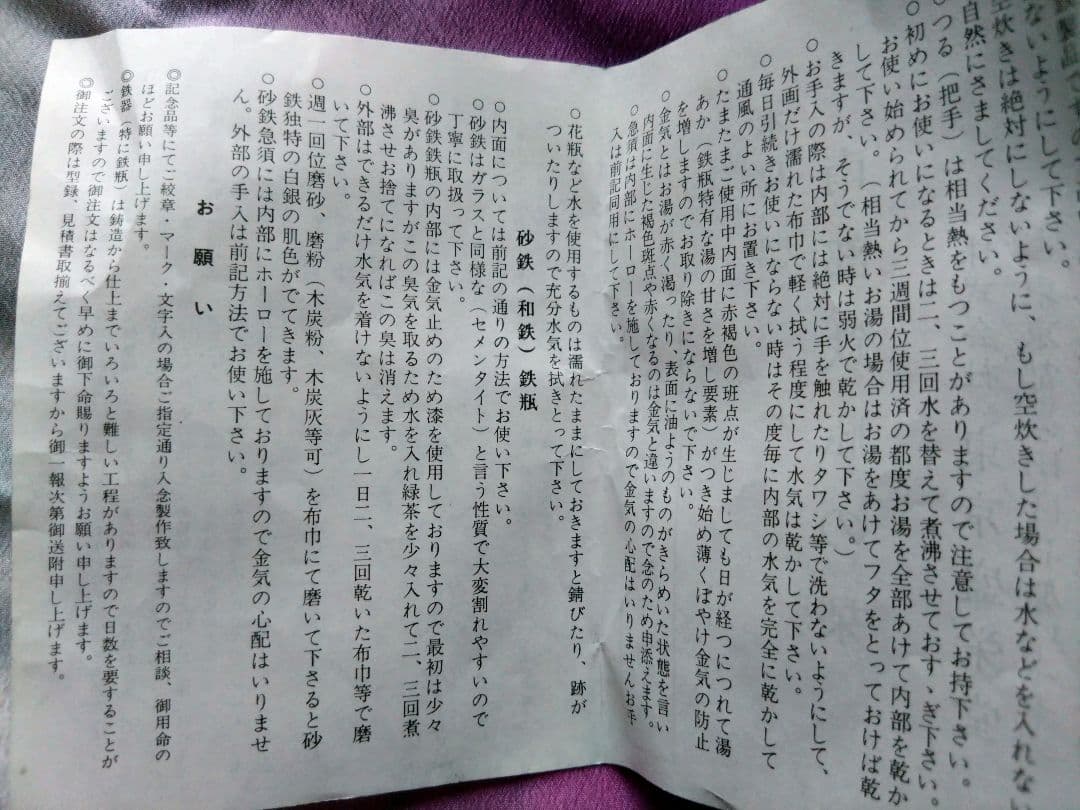 ないようにして下さい。
空炊きは絶対にしないように、もし空炊きした場合は水などを入れな
自然にさましてください。
○つる（把手）は相当熱をもつことがありますので注意してお持下さい。
○初めにお使いになるときは二、三回水を替えて煮沸させておすゝぎ下さい。
お使い始められてから三週間位使用済の都度お湯を全部あけて内部を乾か
して下さい。（相当熱いお湯の場合はお湯をあけてフタをとっておけば乾
きますが、そうでない時は弱火で乾かして下さい。）
○お手入の際は内部には絶対に手を触れたりタワシ等で洗わないようにして、
外画だけ濡れた布巾で軽く拭う程度にして水気は乾かして下さい。
○毎日引続きお使いにならない時はその度毎に内部の水気を完全に乾かして
通風のよい所にお置き下さい。
○たまたまご使用中内面に赤褐色の斑点が生じましても日が経つにつれて湯
あか（鉄瓶特有な湯の甘さを増し要素）がつき始め薄くぼやけ金気の防止
を増しますのでお取り除きにならないで下さい。
○金気とはお湯が赤く濁ったり、表面に油ようのものがきらめいた状態を言い
内面に生じた褐色斑点や赤くなるのは金気と違いますので念のため申添えます。
○急須は内部にホーローを施しておりますので金気の心配はいりませんお手
入は前記同用にして下さい。
○花瓶など水を使用するものは濡れたままにしておきますと錆びたり、跡が
ついたりしますので充分水気を拭きとって下さい。
砂鉄（和鉄）鉄瓶
○内面については前記の通りの方法でお使い下さい。
○砂鉄はガラスと同様な（セメンタイト）と言う性質で大変割れやすいので
丁寧に取扱って下さい。
○砂鉄鉄瓶の内部には金気止めのため漆を使用しておりますので最初は少々
臭がありますがこの臭気を取るため水を入れ緑茶を少々入れて二、三回煮
沸させお捨てになればこの臭は消えます。
○外部はできるだけ水気を着けないようにし一日二、三回乾いた布巾等で磨
いて下さい。
○週一回位磨砂、磨粉（木炭粉、木炭灰等可）を布巾にて磨いて下さると砂
鉄独特の白銀の肌色がでてきます。
○砂鉄急須には内部にホーローを施しておりますので金気の心配はいりませ
ん。外部の手入は前記方法でお使い下さい。
お願い
◎記念品等にてご紋章・マーク・文字入の場合ご指定通り入念製作致しますのでご相談、御用命の
ほどお願い申し上げます。
◎鉄器（特に鉄瓶）は鋳造から仕上までいろいろと難しい工程がありますので日数を要することが
ございますので御注文はなるべく早めに御下命賜りますようお願い申し上げます。
◎御注文の際は型録、見積書取揃えてございますから御一報次第御送附申し上げます。